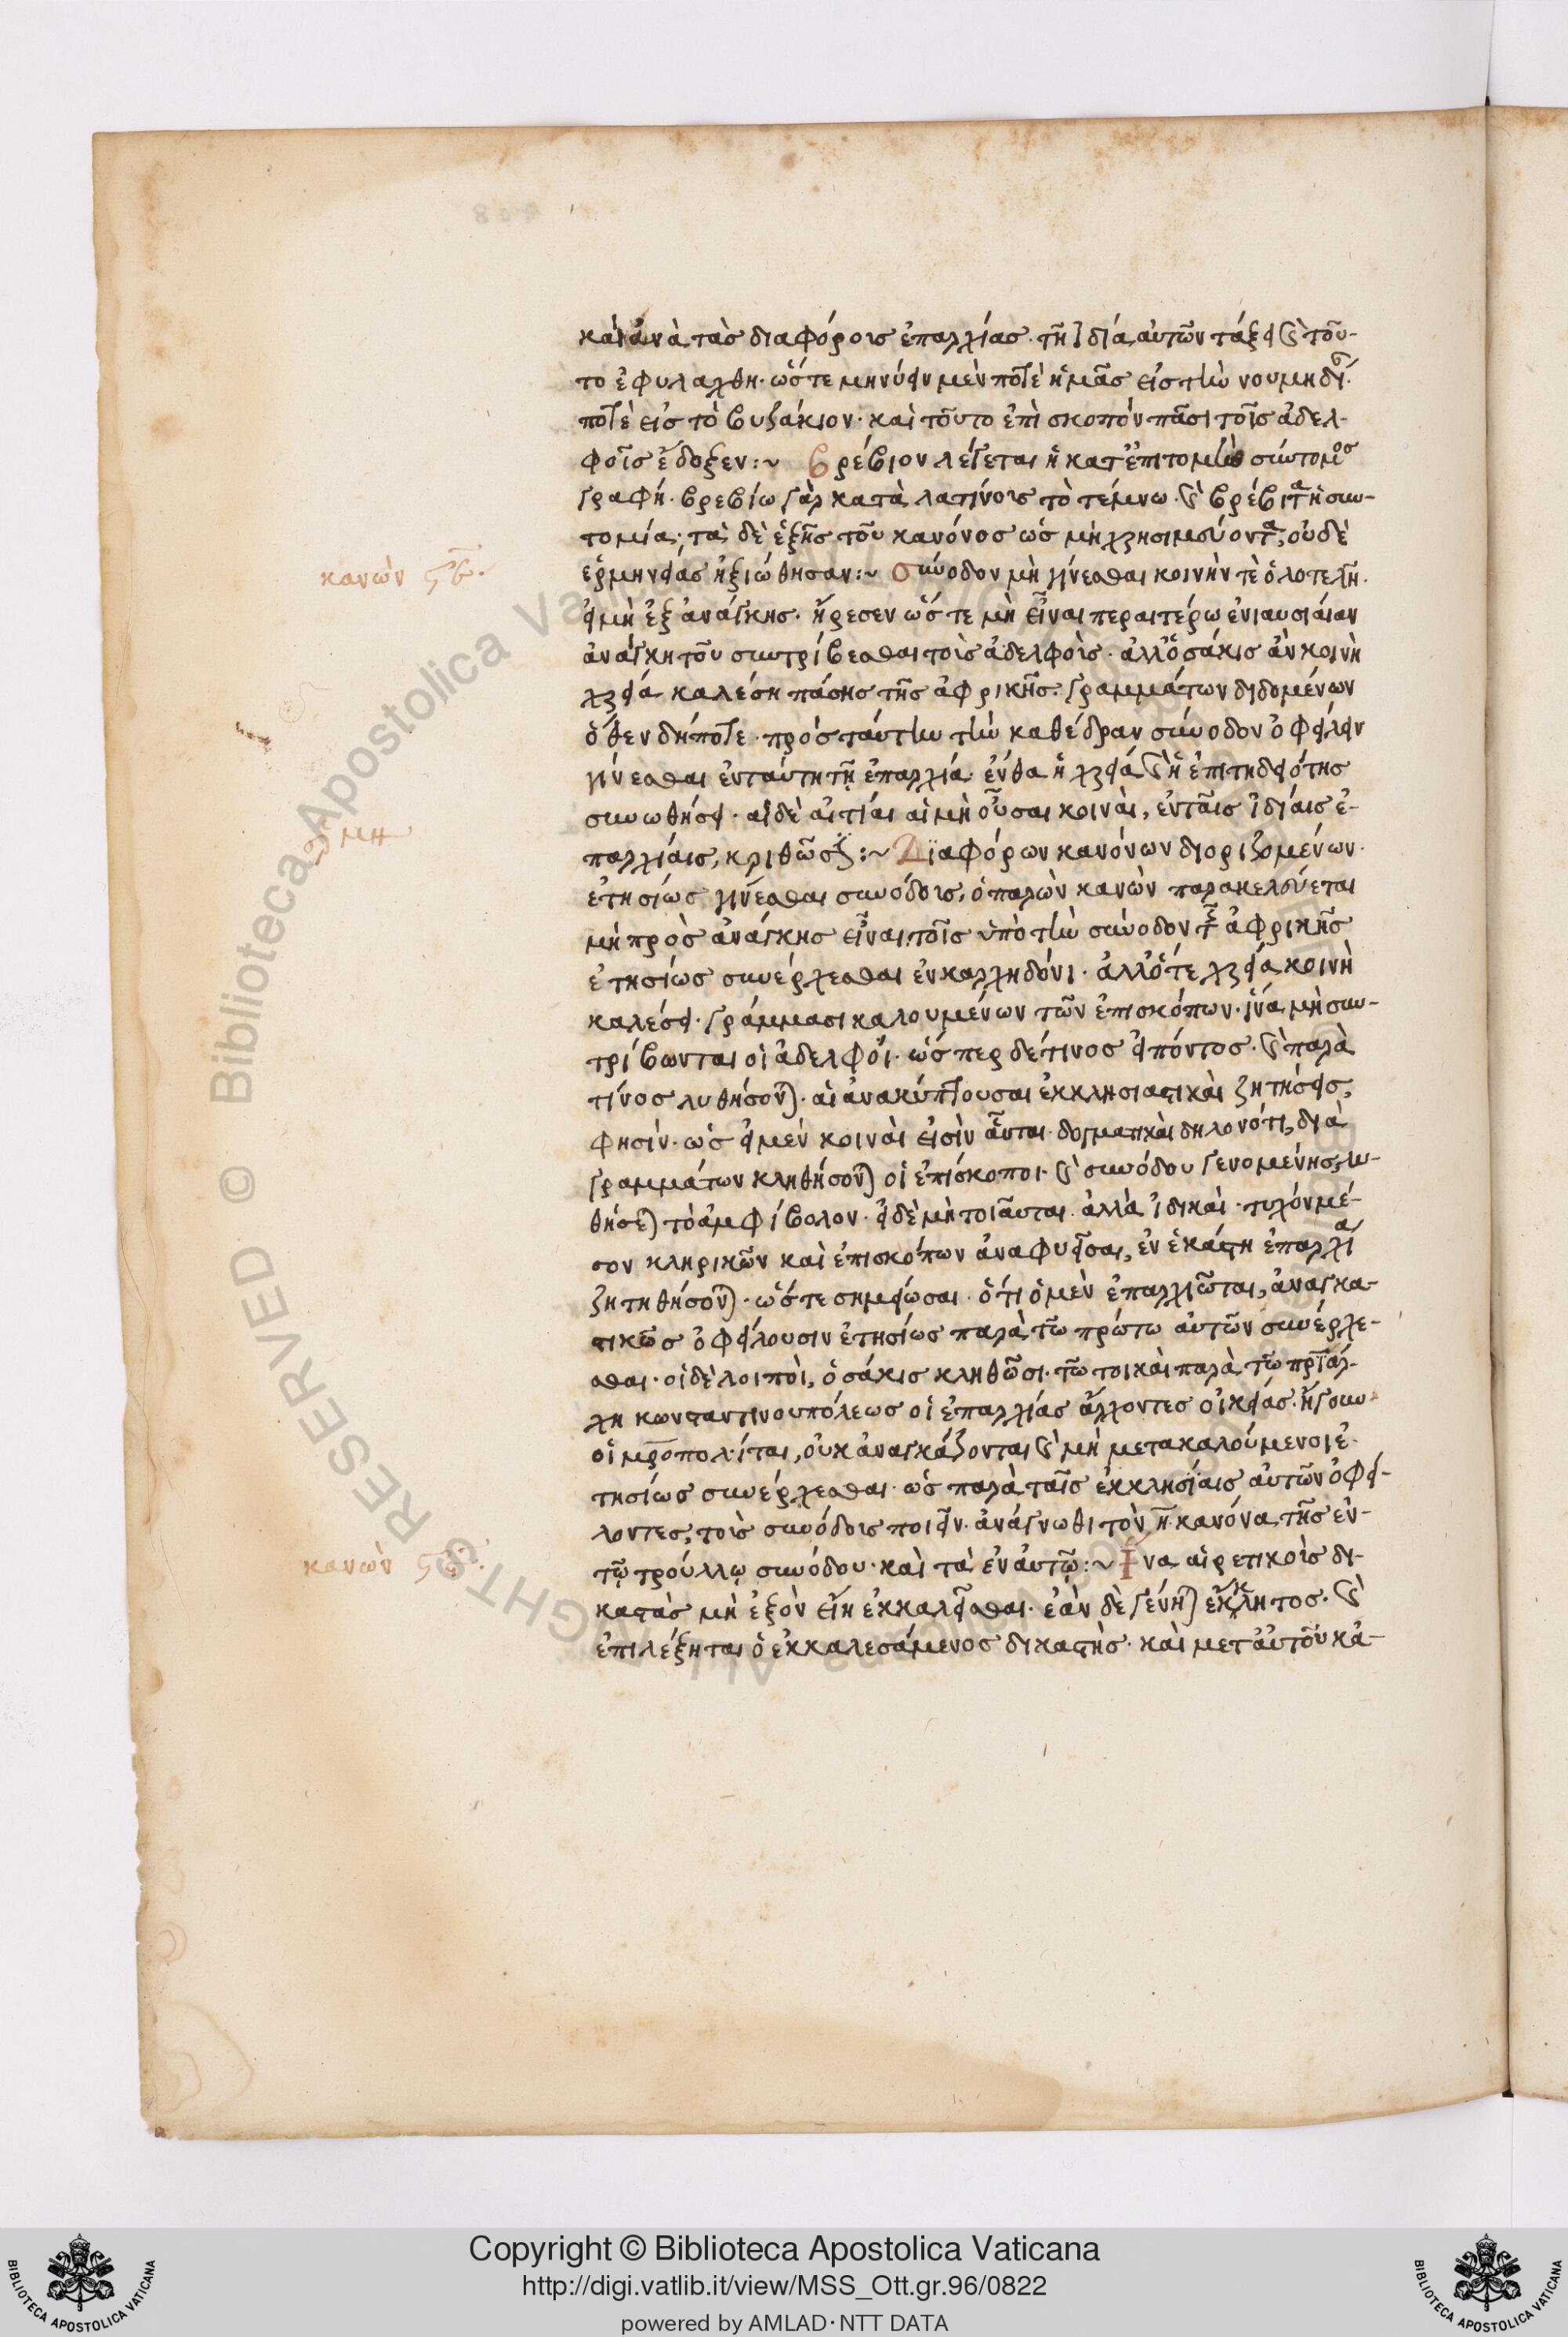 καὶ ἀνὰ τὰς διαφόρους ἐπαρχίας· τῆ ἰδία αὐτῶν τάξει καὶ τοῦ-
το ἐφυλάχθη· ὥστε μηνύειν μὲν ποτὲ ἡμᾶς εἰς τὴν νουμηδίαν·
ποτὲ εἰς τὸ βυζάκιον· καὶ τοῦτο ἐπὶ σκοπὸν πᾶσι τοῖς ἀδελ-
φοῖς ἔδοξεν:~ βρέβιον λέγεται ἡ κατ' ἐπιτομὴν σύντομος
γραφή· βρεβίω γὰρ κατὰ λατίνους τὸ τέμνω· καὶ βρέβιτα ἡ συν-
τομία· τὰ δὲ ἑξῆς τοῦ κανόνος ὡς μὴ χρησιμεύοντα, οὐδὲ
ἑρμηνείας ἠξιώθησαν:~ σύνοδον μὴ γίνεσθαι κοινὴν τὲ ὁλοτελῆ·
εἰ μὴ ἐξ ἀνάγκης· ἤρεσεν ὥστε μὴ εἶναι περαιτέρω ἐνιαυσιαίαν
ἀνάγκη τοῦ συντρίβεσθαι τοὺς ἀδελφοὺς· ἀλλ' ὁσάκις ἂν κοινὴ
χρεία καλέση πάσης τῆς ἀφρικῆς· γραμμάτων διδομένων
ὅθεν δήποτε· πρὸς ταύτην τὴν καθέδραν σύνοδον ὀφείλειν
γίνεσθαι ἐν ταύτη τῆ ἐπαρχία· ἔνθα ἡ χρεία καὶ ἡ ἐπιτηδειότης
συνωθήσει· αἱ δὲ αἰτίαι αἱ μὴ οὖσαι κοιναὶ, ἐν ταῖς ἰδίαις ἐ-
παρχίαις, κριθῶσι:~ Διαφόρων κανόνων διοριζομένων·
ἐτησίως γίνεσθαι συνόδους, ὁ παρὼν κανὼν παρακελεύεται
μὴ πρὸς ἀνάγκης εἶναι τοῖς ὑπὸ τὴν σύνοδον τῆς ἀφρικῆς
ἐτησίως συνέρχεσθαι ἐν καρχηδόνι· ἀλλ' ὅτε χρεία κοινὴ
καλέσει· γράμμασι καλουμένων τῶν ἐπισκόπων· ἵνα μὴ συν-
τρίβωνται οἱ ἀδελφοί· ὥσπερ δέ τινος εἰπόντος· καὶ παρὰ
τίνος λυθήσονται· αἱ ἀνακύπτουσαι ἐκκλησιαστικαὶ ζητήσεις,
φησίν· ὡς εἰ μὲν κοιναὶ εἰσὶν αὗται· δογματικαὶ δηλονότι, διὰ
γραμμάτων κληθήσονται οἱ ἐπίσκοποι· καὶ συνόδου γενομένης ζη-
θήσεται τὸ ἀμφίβολον· εἰ δὲ μὴ τοιαῦται ἀλλὰ ἰδικαὶ· τυχὸν μέ-
σον κληρικῶν καὶ ἐπισκόπων ἀναφυεῖσαι, ἐν ἑκάστη ἐπαρχία
ζητηθήσονται· ὥστε σημείωσαι· ὅτι ὁ μὲν ἐπαρχιῶται, ἀναγκα-
στικῶς ὀφείλουσιν ἐτησίως παρὰ τῶ πρώτω αὐτῶν συνέρχε-
σθαι· οἱ δὲ λοιποὶ, ὁσάκις κληθῶσι· τῶ τοι καὶ παρὰ τῶ πριάρ-
χη κωνσταντινουπόλεως οἱ ἐπαρχίας ἄρχοντες οἰκείας· ἤγουν
οἱ μροπολίται, οὐκ ἀναγκάζονται καὶ μὴ μετακαλούμενοι ἐ-
τησίως συνέρχεσθαι· ὡς παρὰ ταῖς ἐκκλησίαις αὐτῶν ὀφεί-
λοντες, τοὺς συνόδους ποιεῖν· ἀνάγνωθι τὸν η κανόνα τῆς ἐν
τῷ τρούλλῳ συνόδου· καὶ τὰ ἐν αὐτῷ:~ Ἵνα αἱρετικοὺς δι-
καστὰς μὴ ἐξὸν εἴη ἐκκαλεῖσθαι· ἐὰν δὲ γένηται ἔκκλητος· καὶ
ἐπιλέξηται ὁ ἐκκαλεσάμενος δικαστὴς· καὶ μετ' αὐτοῦ κἀ-
κανών
κανὼν
Copyright © Biblioteca Apostolica Vaticana
http://digi.vatlib.it/view/MSS_Ott.gr.96/0822
powered by AMLAD·NTT DATA